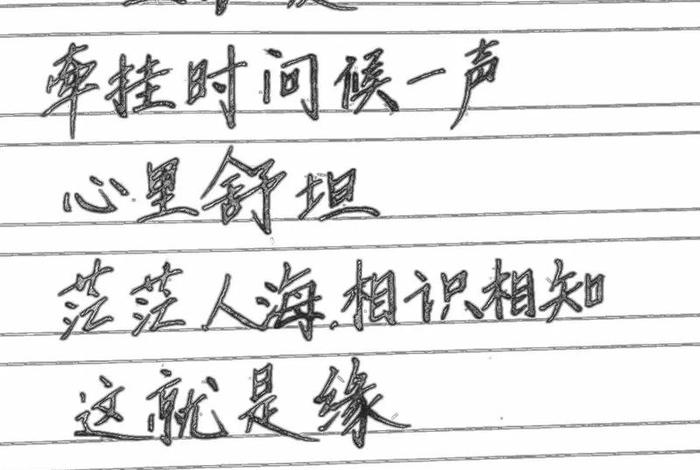 牵挂时问候一声
心里舒坦
茫茫人海.相识相知
这就是缘